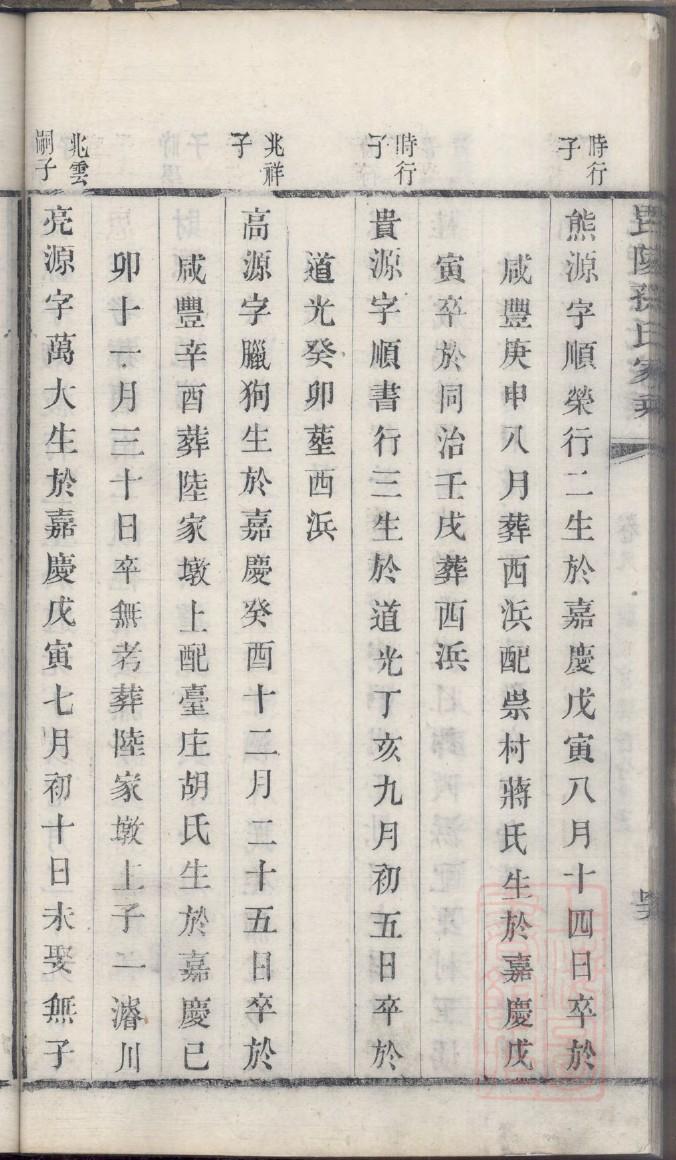 毘陵孫氏家乘
時行
子
熊源字順榮行二生於嘉慶戊寅八月十四日卒於
咸豐庚申八月葬西浜配祟村蔣氏生於嘉慶戊
寅卒於同治壬戌葬西浜
時行
子
貴源字順書行三生於道光丁亥九月初五日卒於
道光癸卯塟西浜
兆祥
子
高源字臘狗生於嘉慶癸酉十二月二十五日卒於
咸豐辛酉葬陸家墩上配臺庄胡氏生於嘉慶已
卯十一月三十日卒無考葬陸家墩上子一濬川
兆雲
嗣子
亮源字萬大生於嘉慶戊寅七月初十日未娶無子